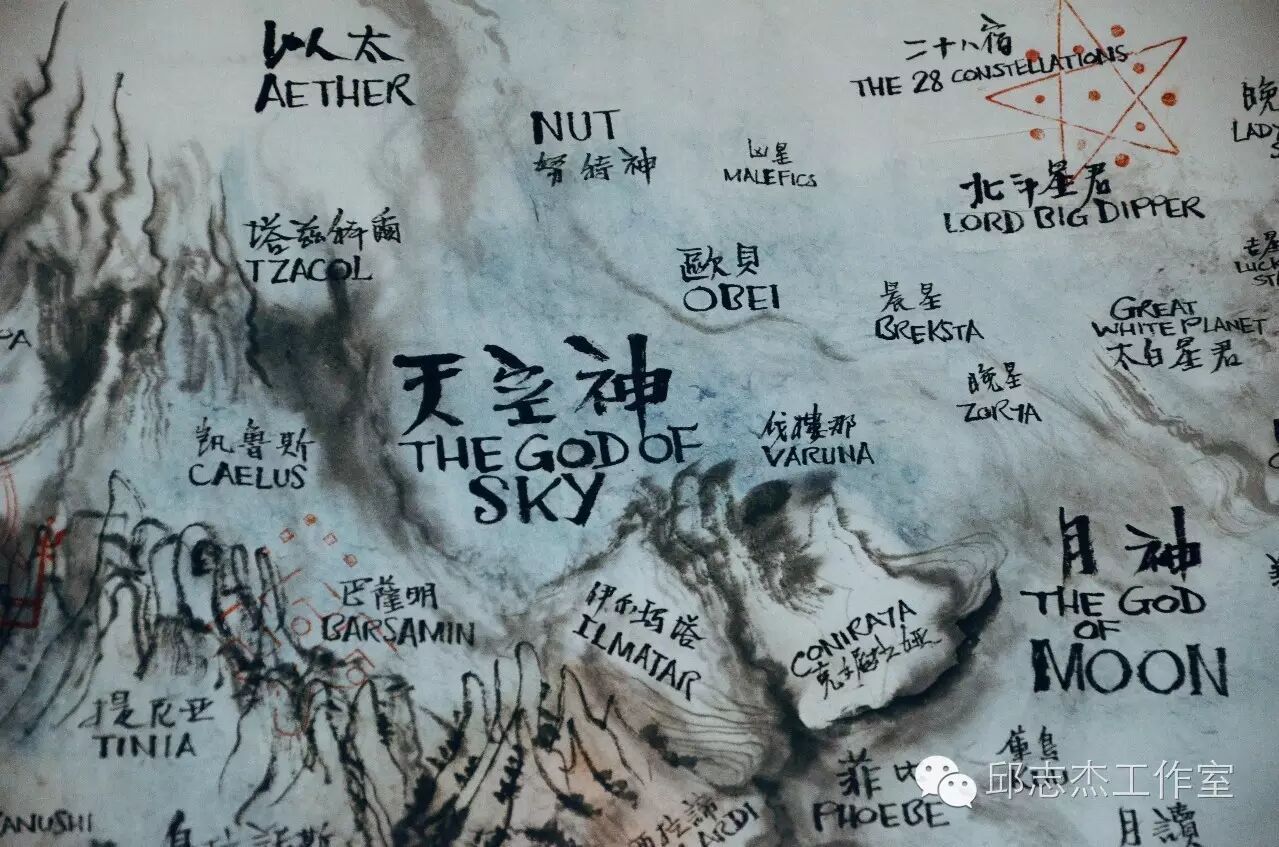 以太
AETHER
二十八宿
THE 28 CONSTELLATIONS
晚
LADY
NUT
努特神
凶星
MALEFICS
北斗星君
LORD BIG DIPPER
塔兹科爾
TZACOL
歐貝
OBEI
晨星
BREKSTA
GREAT
WHITE PLANET
太白星君
吉星
LUCK
STA
PA
天空神
THE GOD OF
SKY
晚星
ZORYA
凯魯斯
CAELUS
伐樓那
VARUNA
月神
THE GOD
OF
MOON
巴薩明
BARSAMIN
伊尔玛塔
ILMATAR
CONIRAYA
提尼亚
TINIA
菲比
PHOEBE
ANUSHI
ARDI
月讀
邱志杰工作室